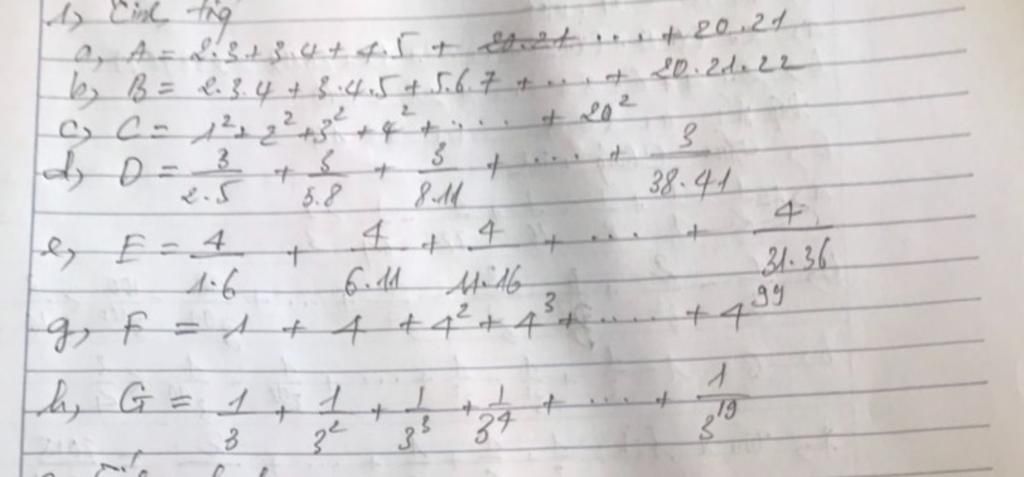 1, Tính tổng
a, A = 2.3 + 3.4 + 4.5 + ... + 20.21
b, B = 2.3.4 + 3.4.5 + 5.6.7 + ... + 20.21.22
c, C = 1² + 2² + 3² + 4² + ... + 20²
d, D = 3/2.5 + 3/5.8 + 3/8.11 + ... + 3/38.41
e, E = 4/1.6 + 4/6.11 + 4/11.16 + ... + 4/31.36
g, F = 1 + 4 + 4² + 4³ + ... + 4⁹⁹
h, G = 1/3 + 1/3² + 1/3³ + 1/3⁴ + ... + 1/3¹⁹